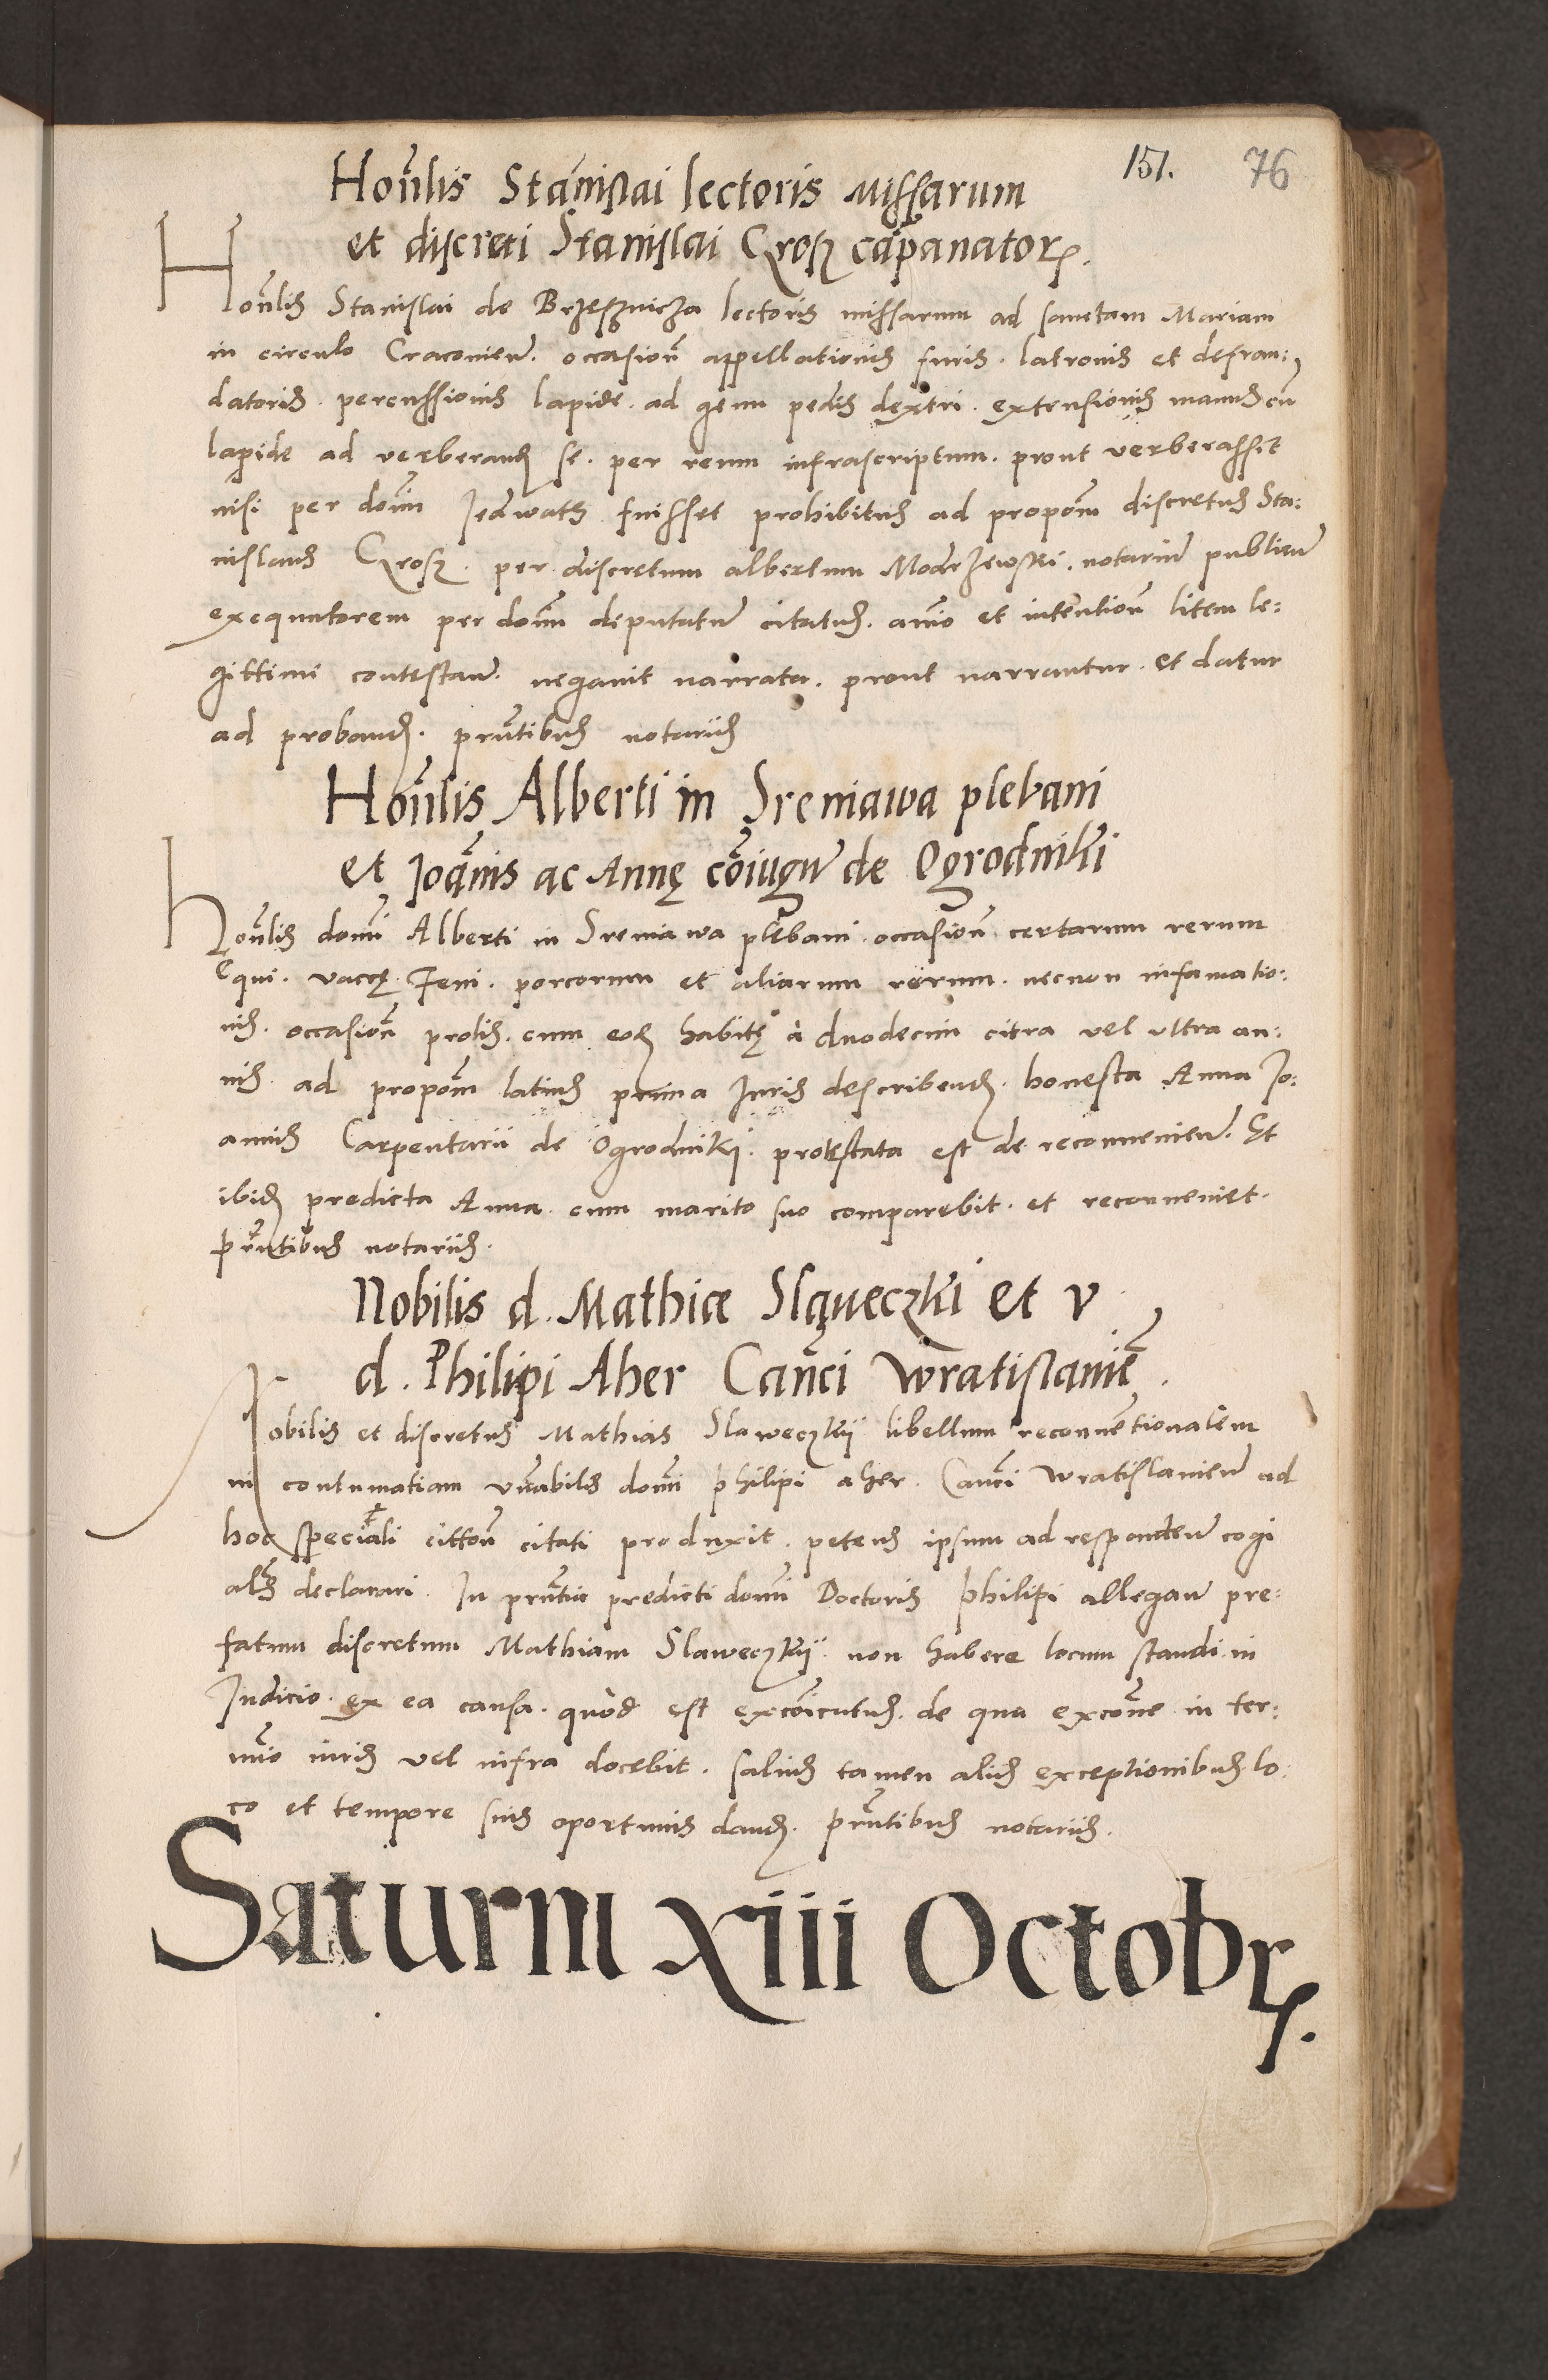 151. 76
Hon̄lis Stanislai lectoris Missarum
et discreti Stanislai Qrosz cāpanatorꝭ.
Hon̄lis Stanislai de Brzesznicza lectoris missarum ad sanctam Mariam
in circulo Cracovien̄. occasion̄ appellationis furis. latronis et defrau:
datoris. percussionis lapide. ad genu pedis dextri. extensionis manus cū
lapide ad verberand̄ se. per reum infrascriptum. prout verberassit
nisi per dom̄ fuisset prohibitus ad propom̄ discretus Sta:
nislaus Qrosz. per discretum albertum Modrzewski. notariū publicū
exequutorem per dom̄ deputatū citatus. aīo et intention̄ litem le:
gittime contestan̄. negavit narrata. prout narrantur. et datur
ad proband̄. pn̄tibus notariis
Hon̄lis Alberti in Sreniawa plebani
et Joānnis ac Annę cōiugū de Ogrodniki
hon̄lis domī Alberti in Sreniawa plebani occasion̄ certarum rerum
Equi. vaccę. Feni. porcorum et aliarum rerum. necnon infamatio:
nis. occasion̄ prolis. cum ead̄ habitę à duodecim citra vel ultra an:
nis ad propom̄ latius prima Juris describend̄. honesta Anna Jo:
annis Carpentarii de Ogrodniki. protestata est de reconvenien̄. Et
ibid̄ predicta Anna. cum marito suo comparebit. et reconveniet.
pn̄tibus notariis.
Nobilis d. Mathiæ Sląveczki et v
d. Philipi Aher Canci Wratislavien̄.
Nobilis et discretus Mathias Slaweczkij libellum reconventionalem
in contumatiam vn̄abilis domī philipi aher. Canci Wratislavien̄ ad
hoc speciali citton̄ citati produxit. petens ipsum ad responden̄ cogi
als declarari. In pn̄tia predicti domī Doctoris philipi allegan̄ pre:
fatum discretum Mathiam Slaweczkij non habere locum standi in
Judicio. ex ea causa. quod est excōicatus. de qua excōne in ter:
mīo iuris vel infra docebit. salvis tamen aliis exceptionibus lo:
co et tempore suis oportunis dand̄. pn̄tibus notariis.
Saturni xiii Octobrꝭ.